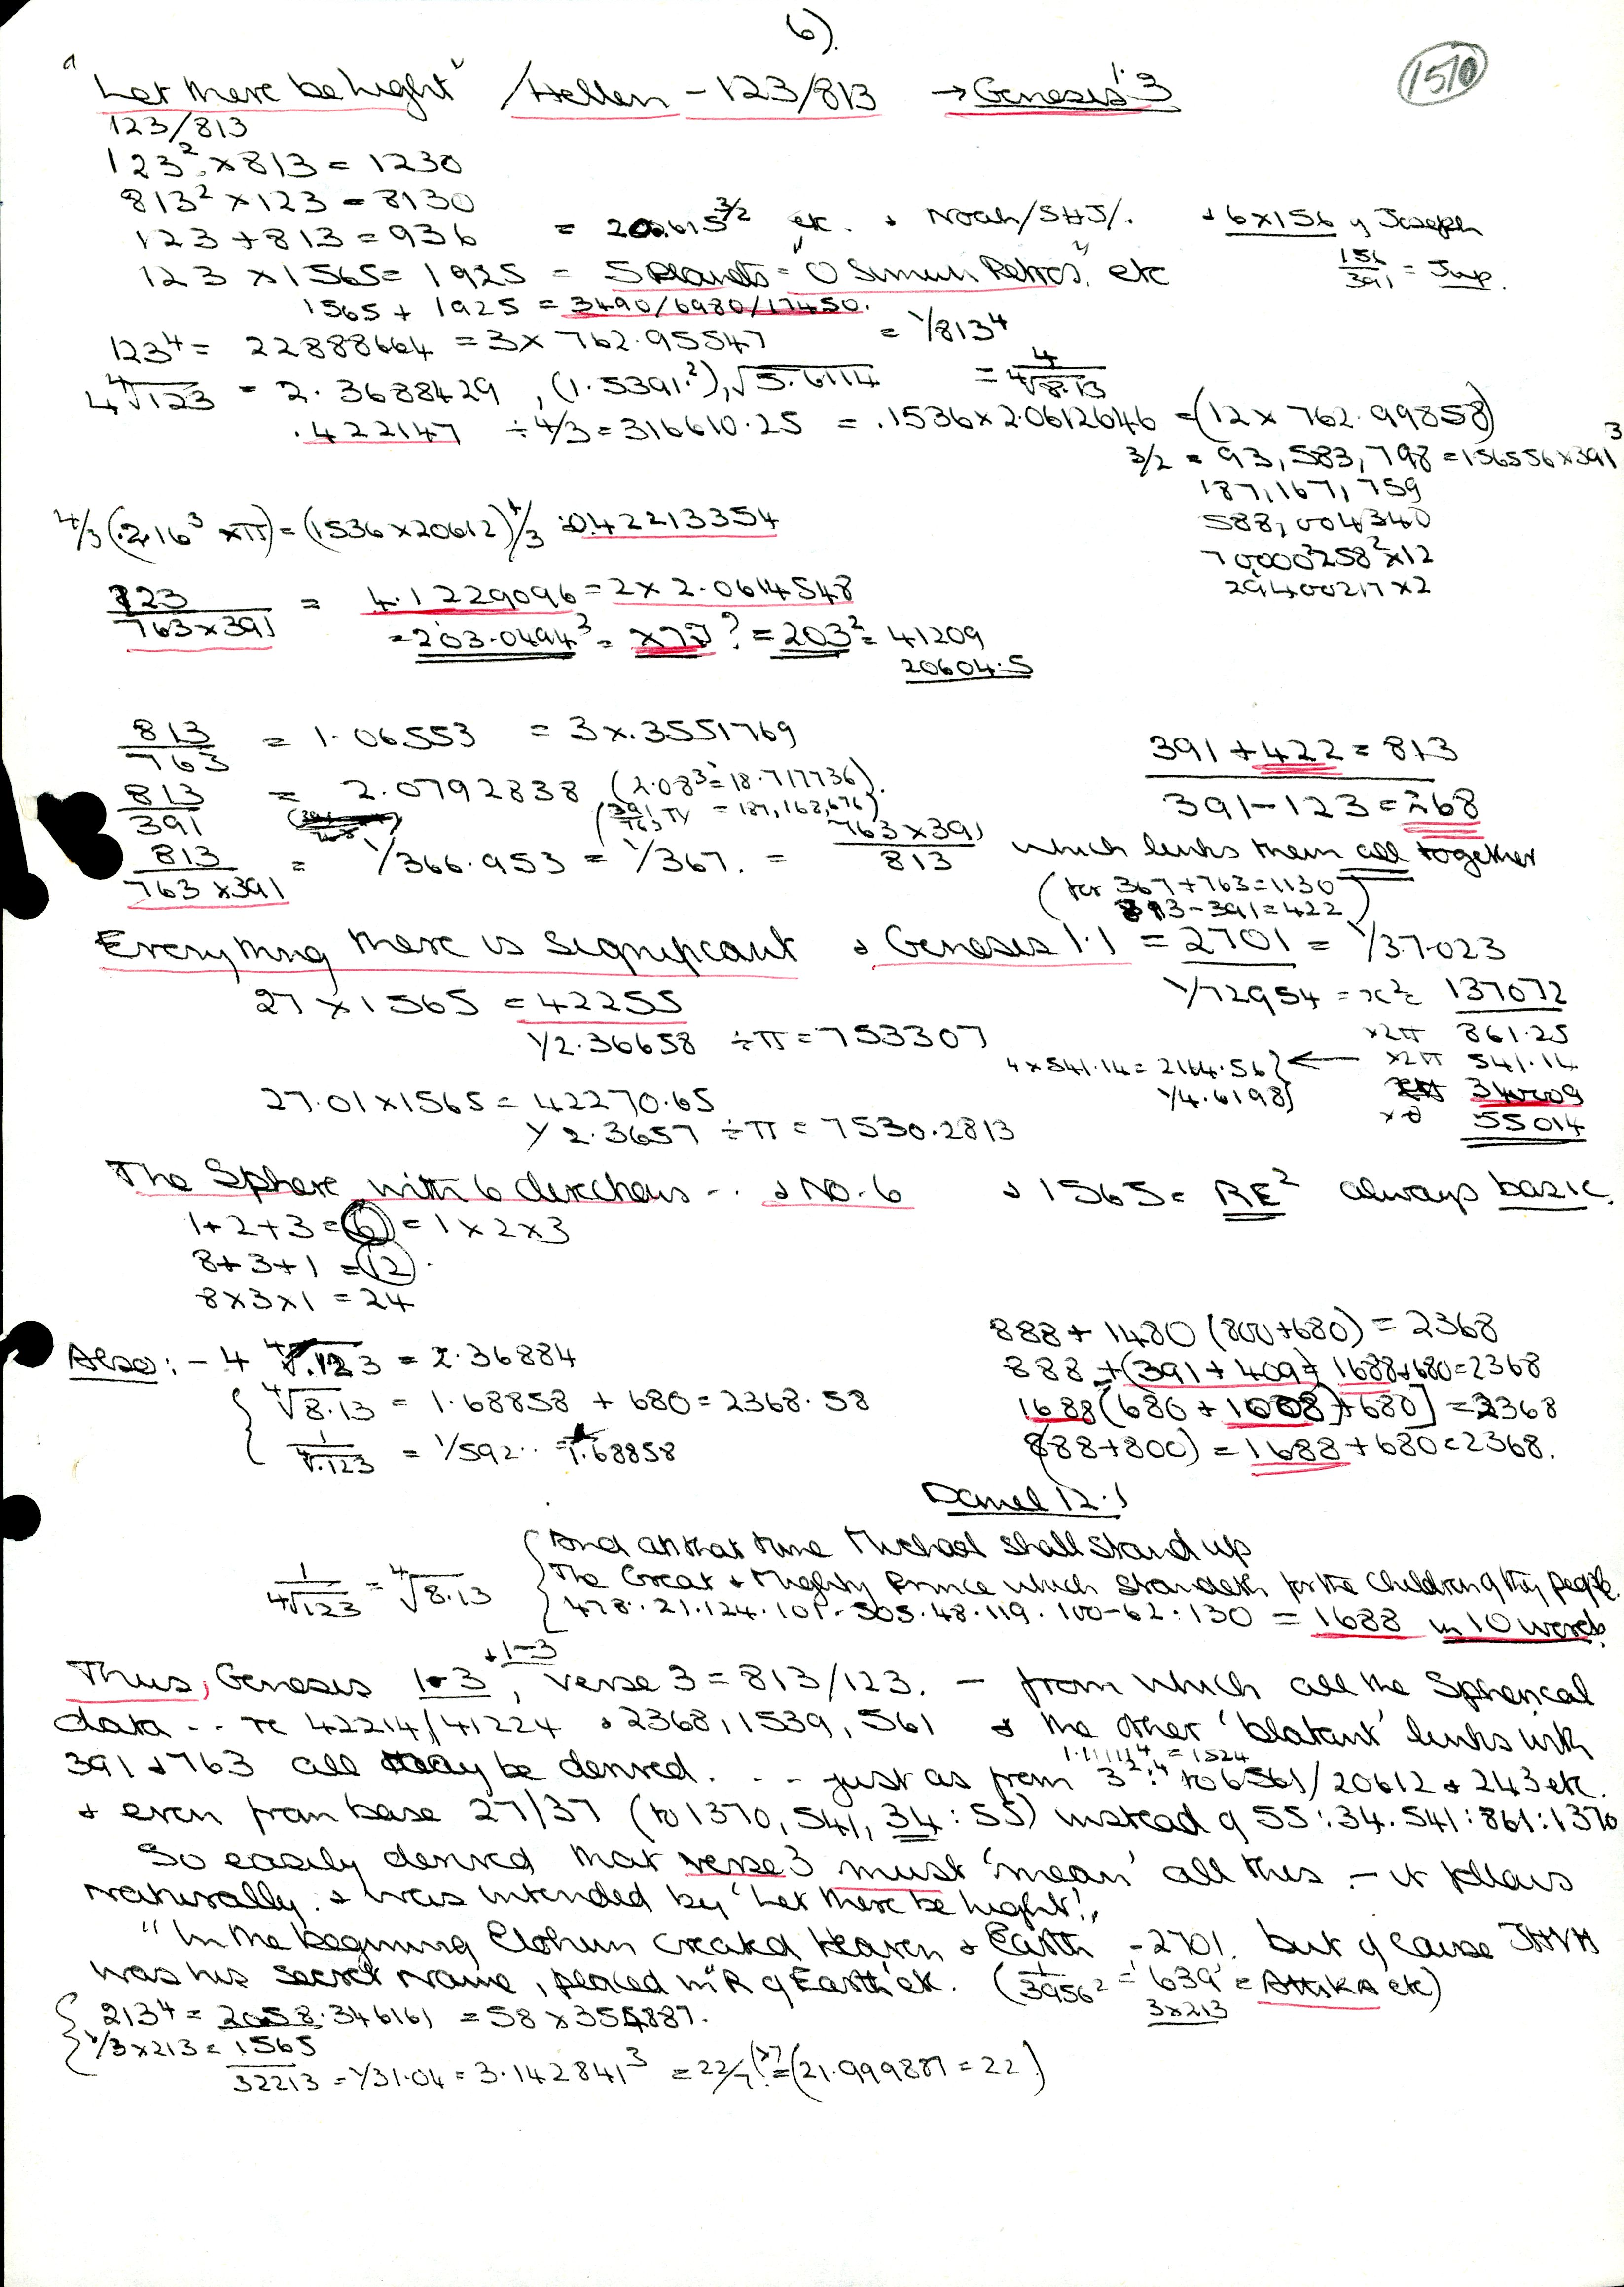 6).
1570
"Let there be Light" / Hellen - 123/813 → Genesis 1:3
123/813
123² × 813 = 1230
813² × 123 = 8130
123 + 813 = 936 = 20.615^3/2 etc. & Noah/SHJ/. & 6×156 of Joseph
156/391 = Jup.
123 × 1565 = 1925 = 5 Planets = "O Simun Petros", etc
1565 + 1925 = 3490/6980/17450.
123⁴ = 22888664 = 3 × 762.95547 = 1/813⁴
4 ⁴√123 = 2.3688429, (1.5391²), √5.6114 = 4/⁴√8.13
.422147 ÷ 4/3 = 316610.25 = .1536 × 2.0612646 = (12 × 762.99858)
3/2 = 93,583,798 = 156556 × 391³
187,167,759
588,004340
70000258² × 12
29400217 × 2
4/3 (.216³ × π) = (1536 × 20612) 4/3 = 0.42213354
123/763×391 = 4.1229096 = 2 × 2.0614548
= 203.0494³ = ×77? = 203² = 41209
20604.5
813/763 = 1.06553 = 3 × .3551769
391 + 422 = 813
391 - 123 = 268
813/391 = 2.0792838 (2.083² = 18.717736).
(391/763 π = 187,168,676)
813/763×391 = 1/366.953 = 1/367. = 763×391/813 which links them all together
(for 367 + 763 = 1130
813 - 391 = 422)
Everything there is significant & Genesis 1.1 = 2701 = 1/37.023
27 × 1565 = 42255
1/72954 = x² = 137072
1/2.36658 ÷ π = 753307
×2π 861.25
4 × 541.14 = 2164.56 ← ×2π 541.14
1/4.6198
340009
55014
27.01 × 1565 = 42270.65
1/2.3657 ÷ π = 7530.2813
The Sphere with 6 directions .. & No. 6 & 1565 = RE² always basic.
1 + 2 + 3 = 6 = 1 × 2 × 3
8 + 3 + 1 = 12.
8 × 3 × 1 = 24
888 + 1480 (800 + 680) = 2368
Also: - 4 ⁴√.123 = 2.36884
888 + (391 + 409) = 1688 + 680 = 2368
⁴√8.13 = 1.68858 + 680 = 2368.58
1688 (680 + 1008) + 680] = 2368
1/⁴√.123 = 1/592.. = 1.68858
(888 + 800) = 1688 + 680 = 2368.
Daniel 12.1
And at that time Michael shall stand up
1/⁴√.123 = ⁴√8.13
The Great & Mighty Prince which standeth for the children of thy people.
478.21.124.101.505.48.119.100-62.130 = 1688 in 10 words.
Thus, Genesis 1-3, & 1-3 verse 3 = 813/123. - from which all the Spherical
data .. re 42214/41224 & 2368, 1539, 561 & the other 'blatant' links with
391 & 763 all may be derived. .. - just as from 3²·⁴ to 6561/20612 & 243 etc.
1.11111⁴ = 1524
& even from base 27/37 (to 1370, 541, 34:55) instead of 55:34.541:861:1370
So easily derived that verse 3 must 'mean' all this - it follows
naturally. & was intended by "Let there be Light!"
"In the beginning Elohim created Heaven & Earth - 2701. but of cause JHVH
was his secret name, placed in "R of Earth" etc. (1/3956² = 639 = Attika etc)
3×213
213⁴ = 2058.346161 = 58 × 354887.
1/3 × 213 = 1565
32213 = 1/31.04 = 3.142841³ = 22/7 (×7 = (21.999887 = 22)